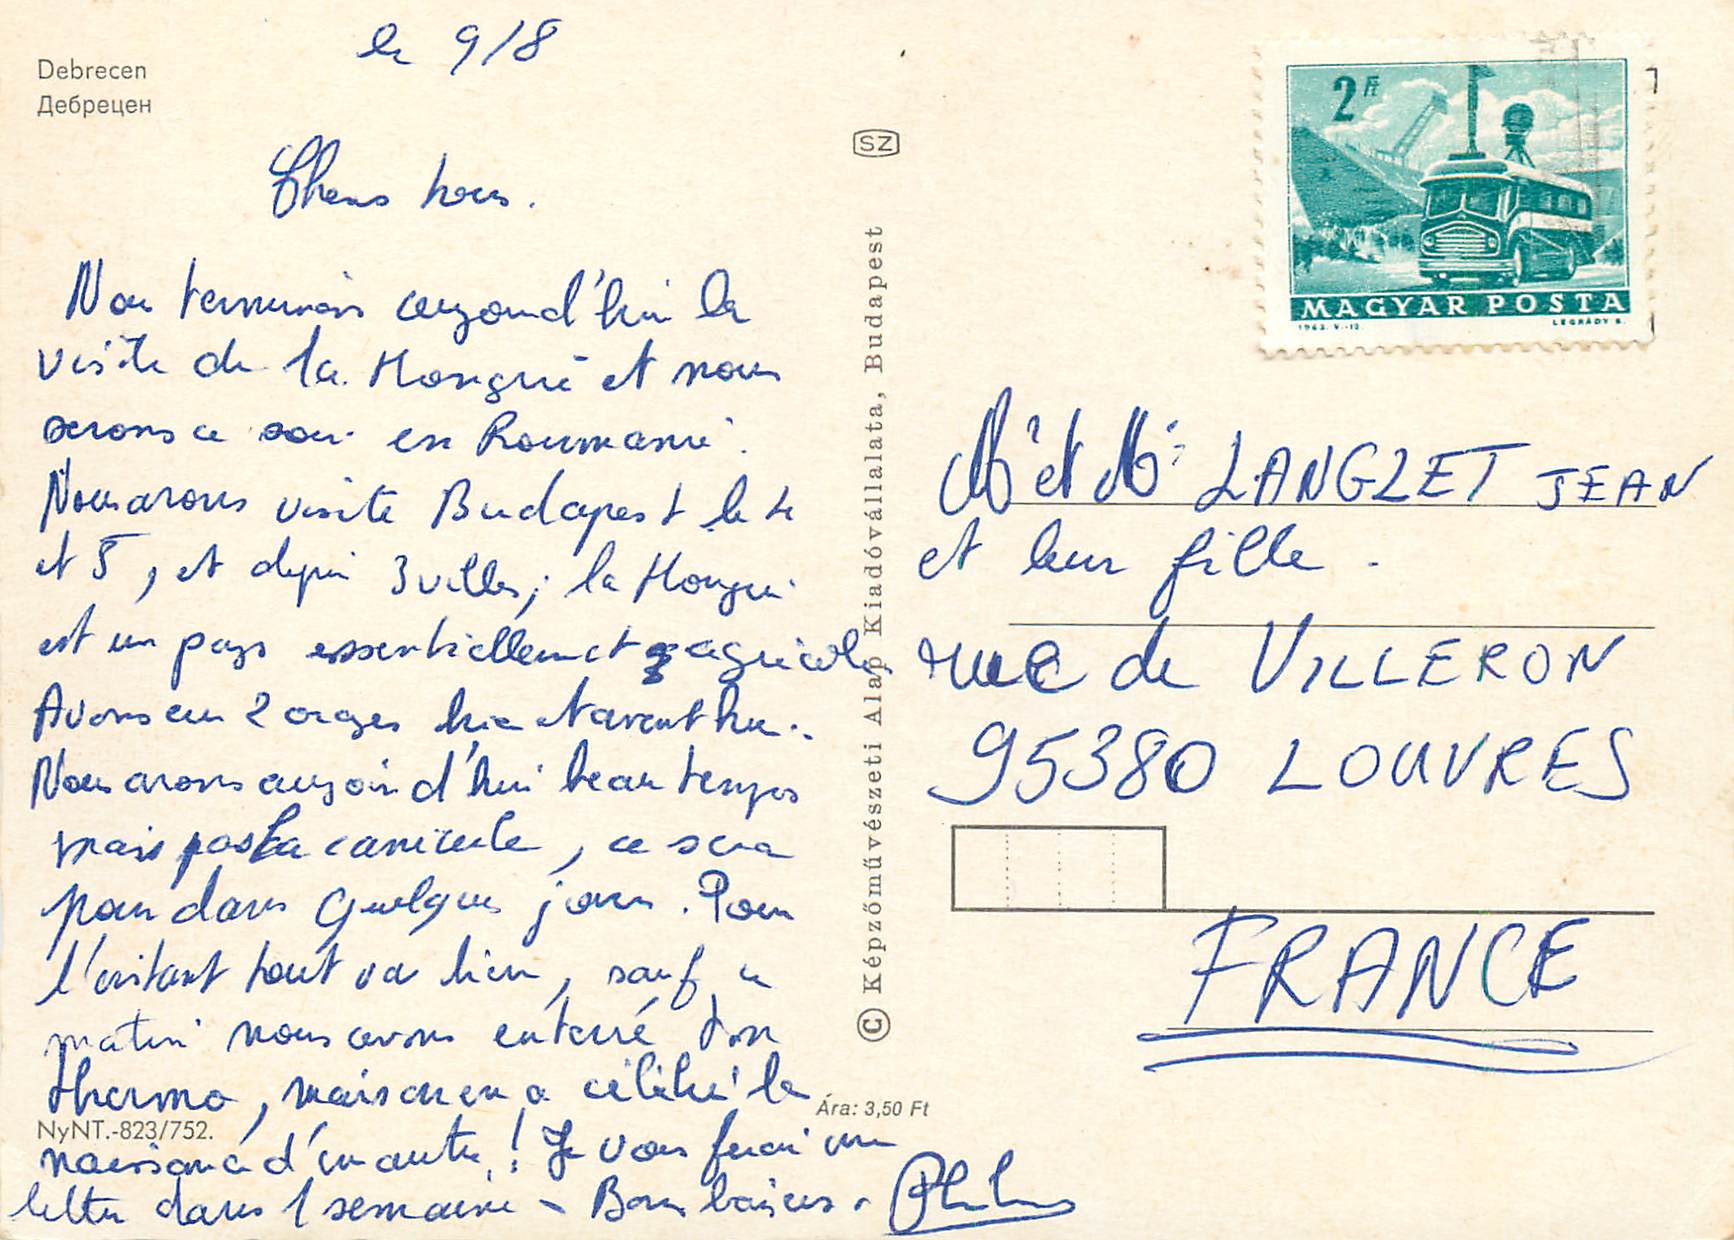 Debrecen
Дебрецен
le 9/8
Chers tous.
Nous terminons aujourd'hui la
visite de la Hongrie et nous
serons ce soir en Roumanie.
Nous avons visité Budapest le 4
et 5, et depuis 3 villes; la Hongrie
est un pays essentiellement agricole,
Avons eu 2 orages hier et avant hier.
Nous avons aujourd'hui beau temps
mais pas la canicule, ce sera
pour dans quelques jours. Pour
l'instant tout va bien, sauf ce
matin nous avons enterré ton
thermo, mais on en a célébré la
naissance d'un autre! Je vous ferai une
lettre dans 1 semaine - Bons baisers.
NyNT.-823/752.
Ára: 3,50 Ft
SZ
© Képzőművészeti Alap Kiadóvállalata, Budapest
2 Ft
MAGYAR POSTA
1963. V.-10.
LÉGRÁDY S.
Mr et Me LANGLET JEAN
et leur fille.
rue de VILLERON
95380 LOUVRES
FRANCE